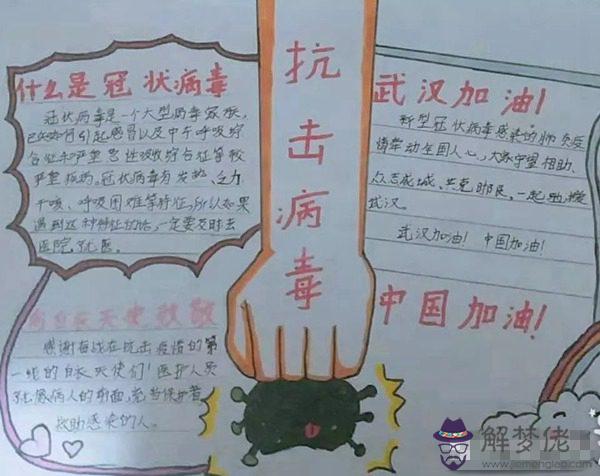 什么是冠状病毒
冠状病毒是一个大型病毒家族，
已知可引起感冒以及中东呼吸综
合征和严重急性呼吸综合征等较
严重疾病。冠状病毒有发热、乏力、
干咳、呼吸困难等特征，所以如果
遇到这种特征的话，一定要及时去
医院就医。
抗
击
病
毒
武汉加油！
新型冠状病毒感染的肺炎疫
情牵动全国人心，大家守望相助、
众志成城、共克时艰，一起
武汉。
武汉加油！中国加油！
中国加油！
向白衣天使致敬
感谢奋战在抗击疫情的第
一线的白衣天使们！医护人员
病人的前面，
救助感染的人。
解梦佬
www.jiemenglao.com